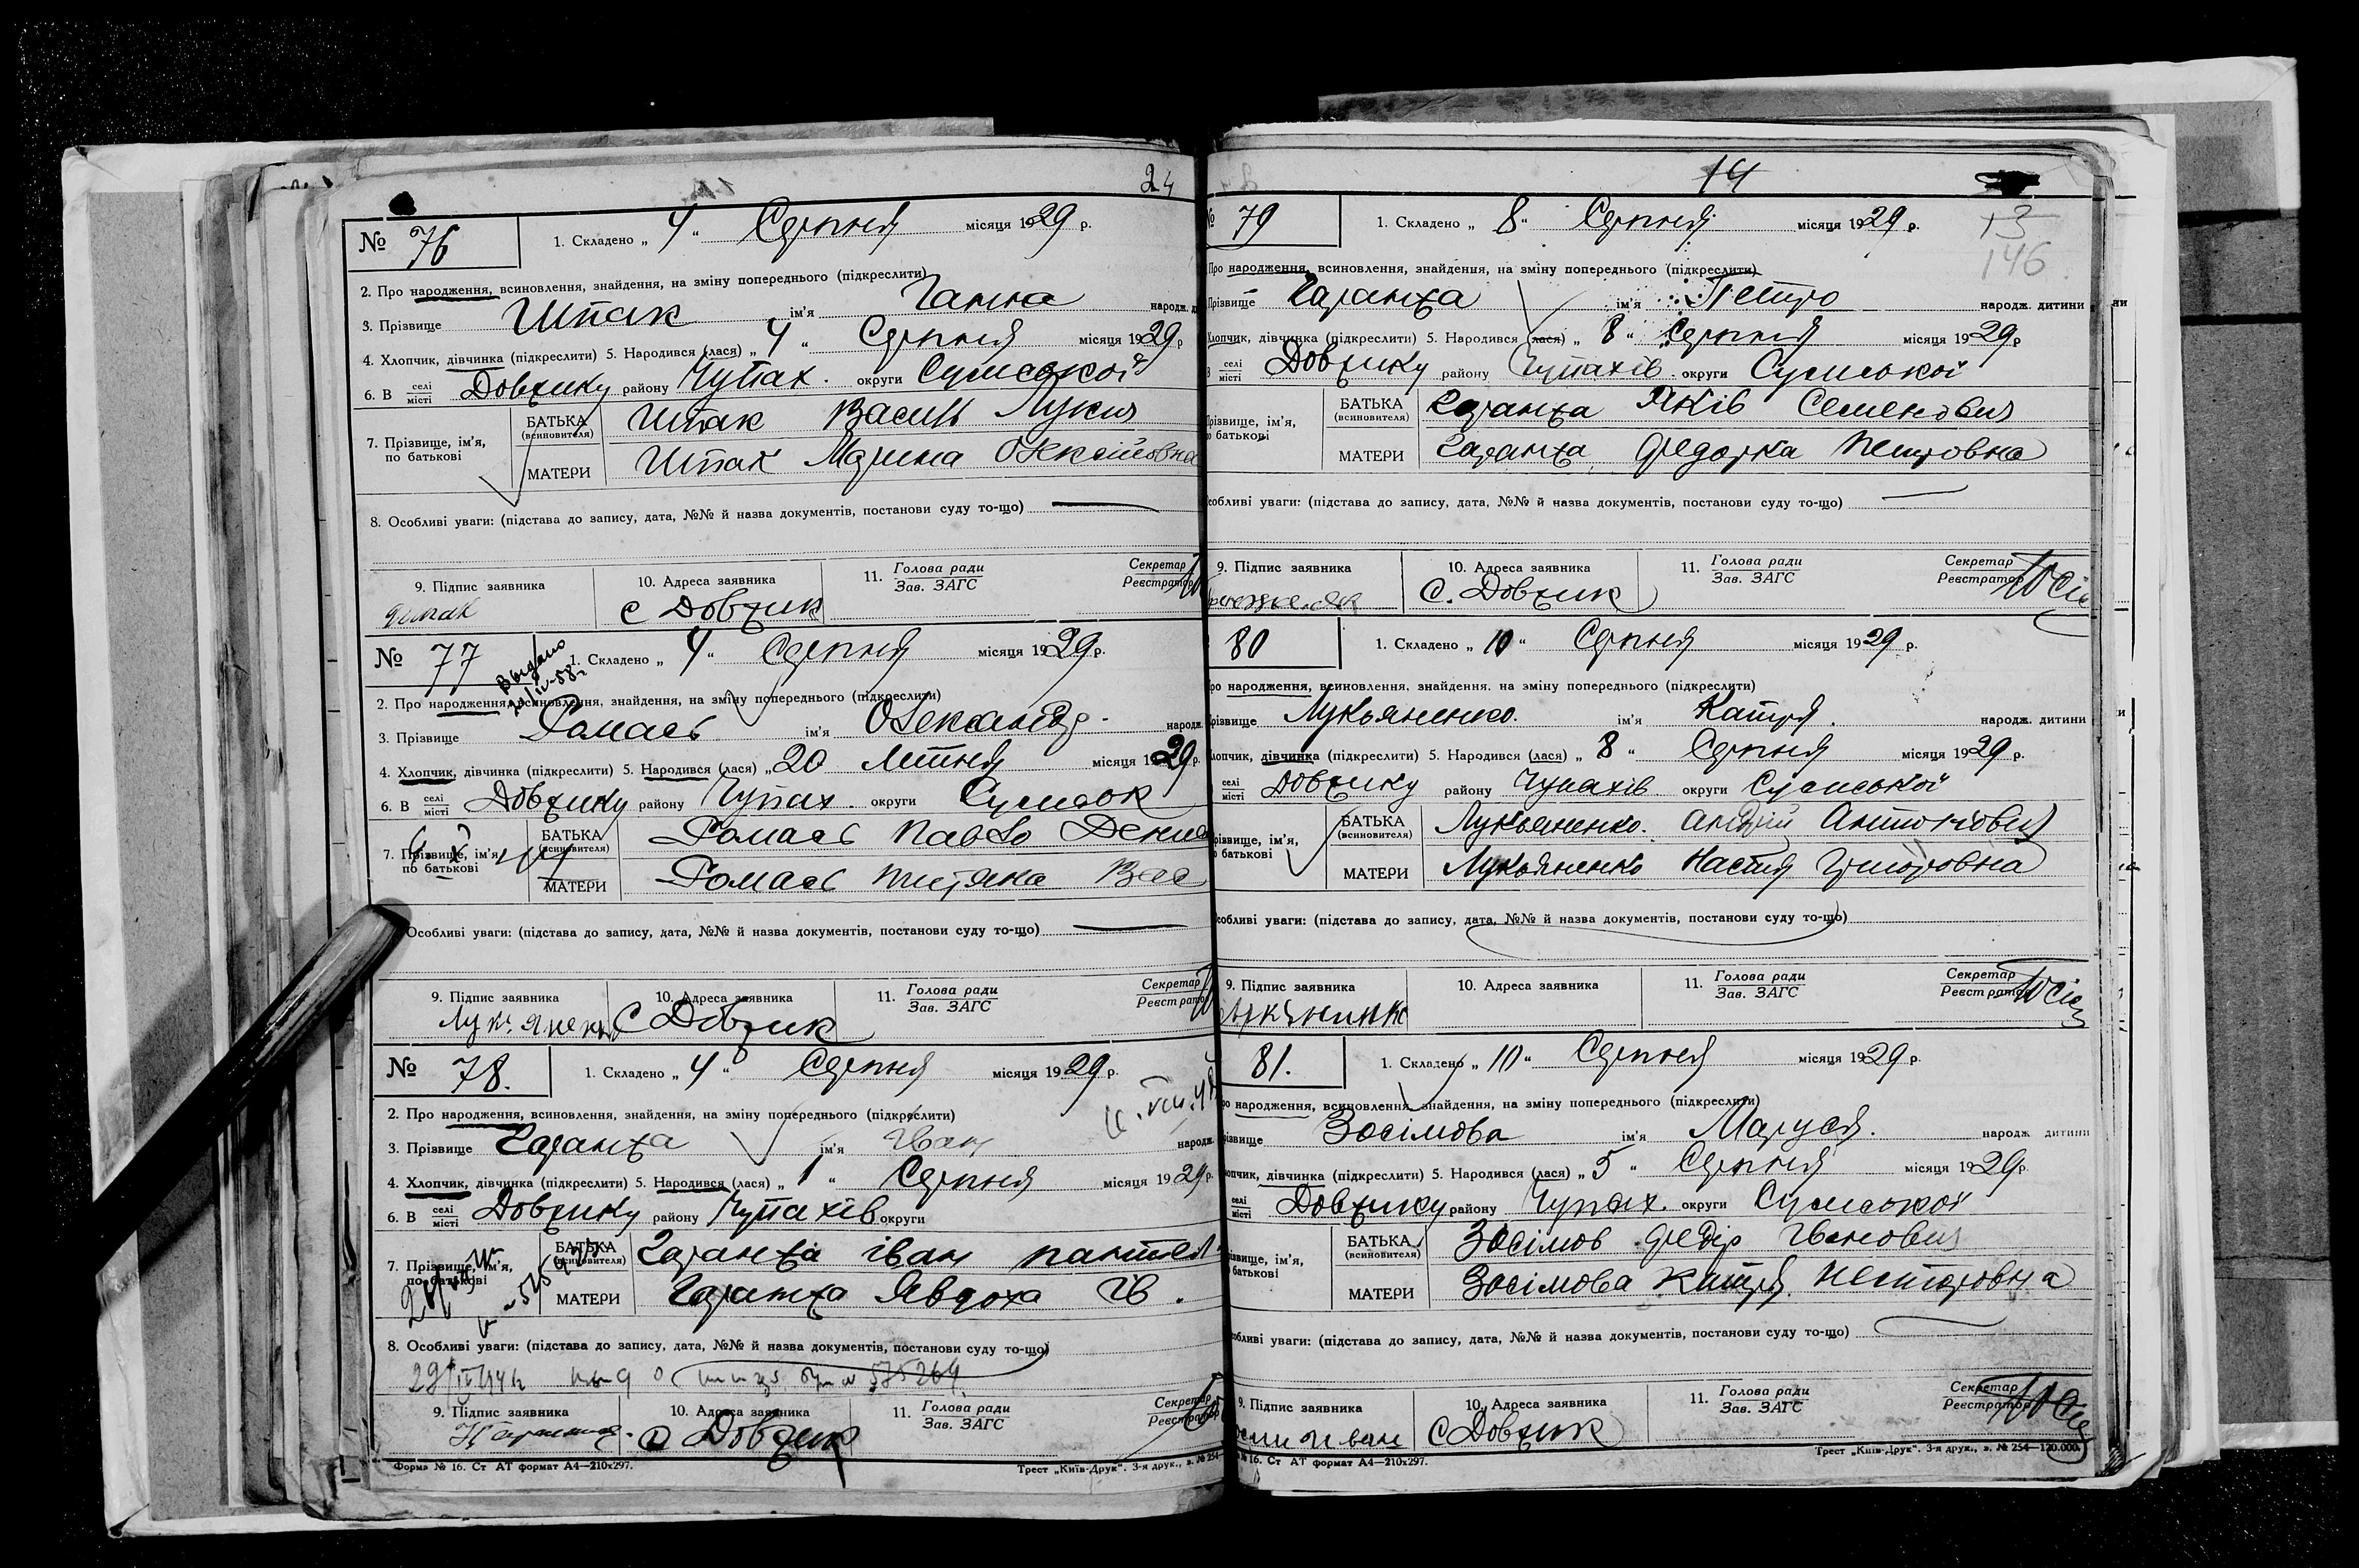 24
№ 76
1. Складено „ 4 “ Серпня місяця 1929 р.
2. Про народження, всиновлення, знайдення, на зміну попереднього (підкреслити)
3. Прізвище Шпак ім'я Ганна народж.
4. Хлопчик, дівчинка (підкреслити) 5. Народився (лася) „ 4 “ Серпня місяця 1929 р
6. В селі місті Довжику району Чупах. округи Сумської
7. Прізвище, ім'я, по батькові
БАТЬКА (всиновителя) Шпак Василь Лукич
МАТЕРИ Шпак Марина Олексіївна
8. Особливі уваги: (підстава до запису, дата, №№ й назва документів, постанови суду то-що)
9. Підпис заявника 10. Адреса заявника 11. Голова ради Зав. ЗАГС Секретар Реєстратор
Шпак с Довжик
№ 77
Выдано
1. Складено „ 4 “ Серпня місяця 1929 р.
2. Про народження, всиновлення, знайдення, на зміну попереднього (підкреслити)
3. Прізвище Ромась ім'я Олександр народж.
4. Хлопчик, дівчинка (підкреслити) 5. Народився (лася) „ 20 Липня місяця 1929 р.
6. В селі місті Довжику району Чупах. округи Сумськ
7. Прізвище, ім'я, по батькові
БАТЬКА (всиновителя) Ромась Павло
МАТЕРИ Ромась Тетяна Вас
Особливі уваги: (підстава до запису, дата, №№ й назва документів, постанови суду то-що)
9. Підпис заявника 10. Адреса заявника 11. Голова ради Зав. ЗАГС Секретар Реєстратор
с Довжик
№ 78.
1. Складено „ 4 “ Серпня місяця 1929 р.
2. Про народження, всиновлення, знайдення, на зміну попереднього (підкреслити)
3. Прізвище Гаранжа ім'я Іван народж.
4. Хлопчик, дівчинка (підкреслити) 5. Народився (лася) „ 1 “ Серпня місяця 1929 р.
6. В селі місті Довжику району Чупахів округи
7. Прізвище, ім'я, по батькові
БАТЬКА (всиновителя) Гаранжа Іван Пантел
МАТЕРИ Гаранжа Явдоха Ів.
8. Особливі уваги: (підстава до запису, дата, №№ й назва документів, постанови суду то-що)
575264
9. Підпис заявника 10. Адреса заявника 11. Голова ради Зав. ЗАГС Секретар Реєстратор
с Довжик
Форма № 16. Ст АТ формат А4—210х297. Трест „Київ-Друк“. 3-я друк., з. № 254—
14
13
146
№ 79
1. Складено „ 8 “ Серпня місяця 1929 р.
Про народження, всиновлення, знайдення, на зміну попереднього (підкреслити)
Прізвище Гаранжа ім'я Петро народж. дитини
Хлопчик, дівчинка (підкреслити) 5. Народився (лася) „ 8 “ Серпня місяця 1929 р
селі місті Довжику району Чупахів. округи Сумської
Прізвище, ім'я, по батькові
БАТЬКА (всиновителя) Гаранжа Яків Семенович
МАТЕРИ Гаранжа Федорка Петровна
Особливі уваги: (підстава до запису, дата, №№ й назва документів, постанови суду то-що)
9. Підпис заявника 10. Адреса заявника 11. Голова ради Зав. ЗАГС Секретар Реєстратор
с. Довжик
80
1. Складено „ 10 “ Серпня місяця 1929 р.
Про народження, всиновлення, знайдення, на зміну попереднього (підкреслити)
Прізвище Лукьяненко. ім'я Катря. народж. дитини
Хлопчик, дівчинка (підкреслити) 5. Народився (лася) „ 8 “ Серпня місяця 1929 р.
селі місті Довжику району Чупахів округи Сумської
Прізвище, ім'я, по батькові
БАТЬКА (всиновителя) Лукьяненко. Андрій Антонович
МАТЕРИ Лукьяненко Настя Григоровна
Особливі уваги: (підстава до запису, дата, №№ й назва документів, постанови суду то-що)
9. Підпис заявника 10. Адреса заявника 11. Голова ради Зав. ЗАГС Секретар Реєстратор
81.
1. Складено „ 10 “ Серпня місяця 1929 р.
Про народження, всиновлення, знайдення, на зміну попереднього (підкреслити)
Прізвище Зосімова ім'я Маруся. народж дитини
Хлопчик, дівчинка (підкреслити) 5. Народився (лася) „ 5 “ Серпня місяця 1929 р.
селі місті Довжику району Чупах. округи Сумської
Прізвище, ім'я, по батькові
БАТЬКА (всиновителя) Зосімов Федір Іванович
МАТЕРИ Зосімова Катря Несторовна
Особливі уваги: (підстава до запису, дата, №№ й назва документів, постанови суду то-що)
9. Підпис заявника 10. Адреса заявника 11. Голова ради Зав. ЗАГС Секретар Реєстратор
с Довжик
№ 16. Ст АТ формат А4—210х297. Трест „Київ-Друк“. 3-я друк., з. № 254—120.000.